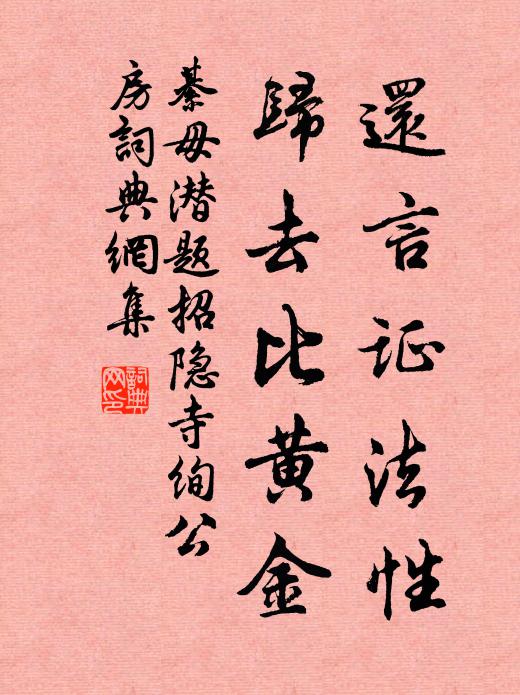 還言证法性
歸去比黄金
綦毋潜题招隐寺绚公
房詞典網集
詞典网印